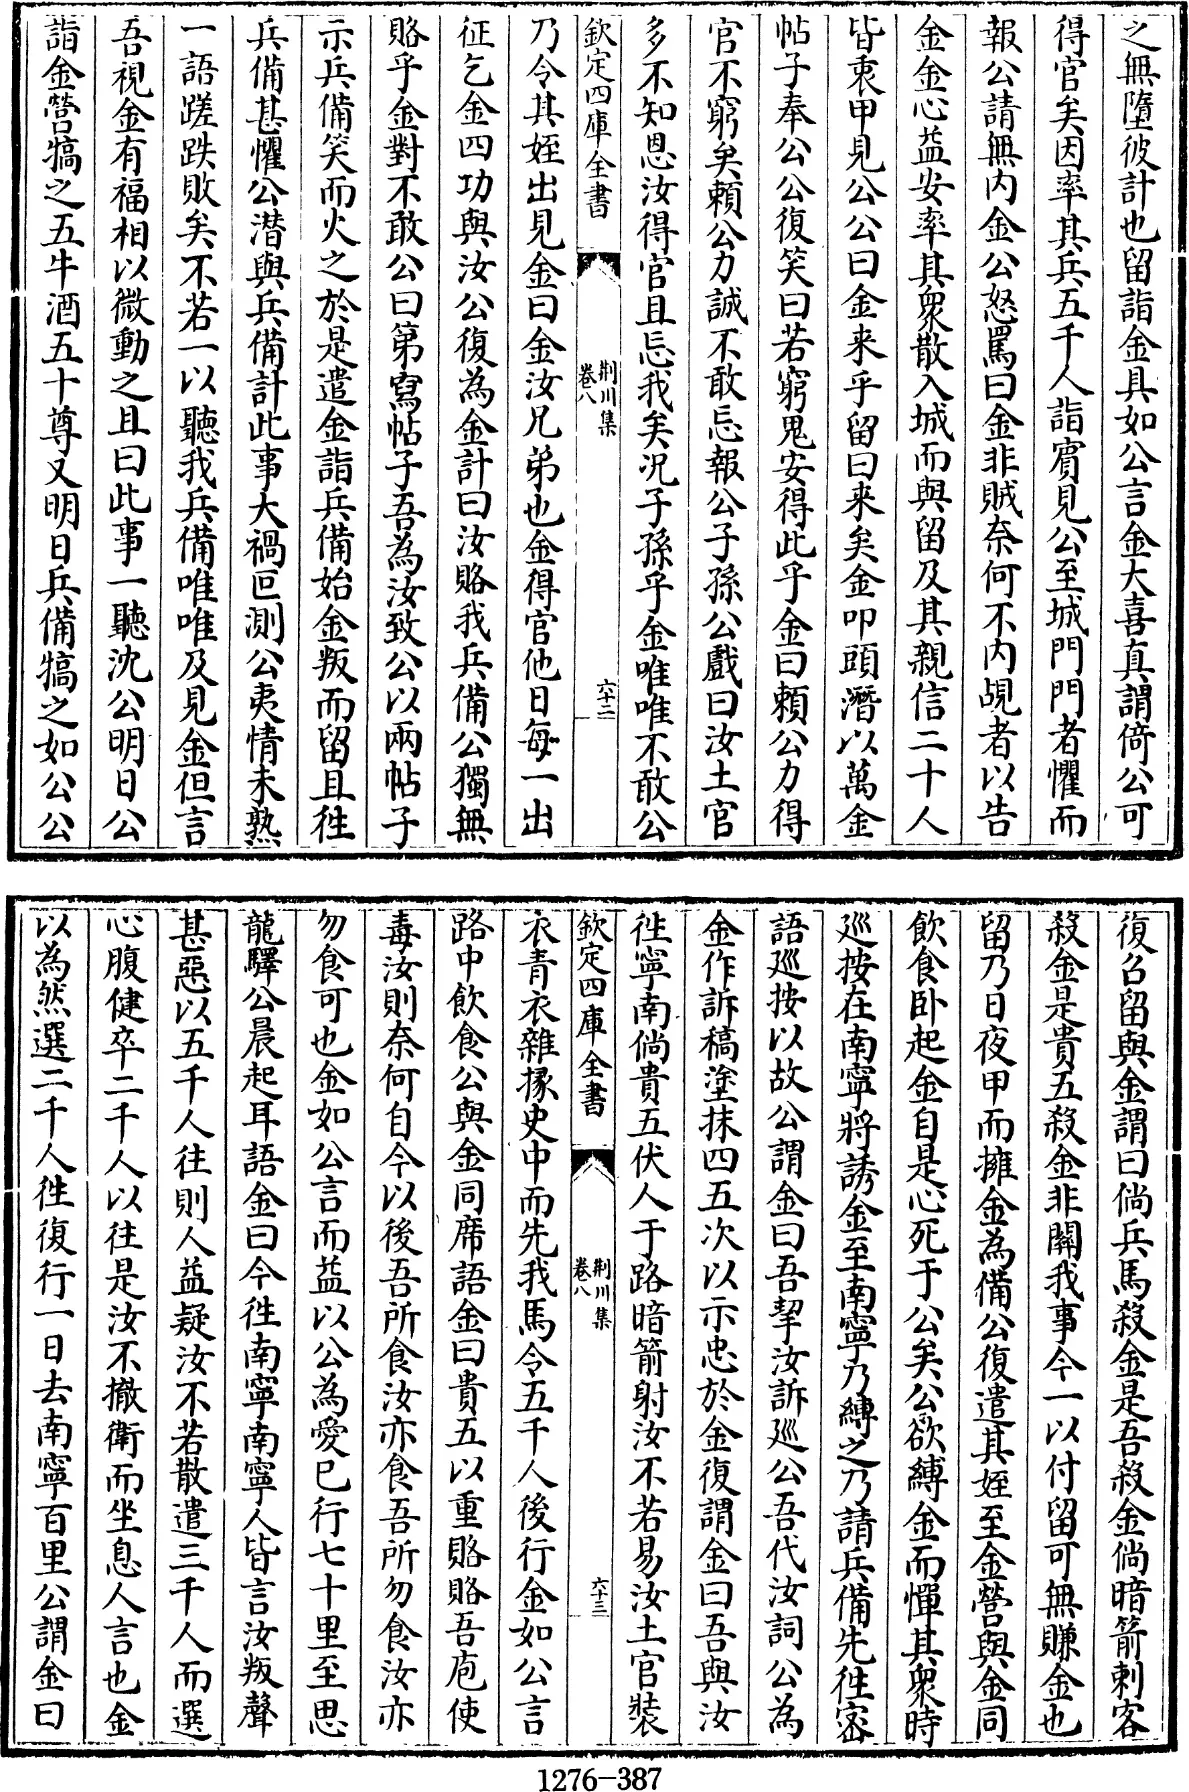 之無墮彼計也留詣金具如公言金大喜真謂倚公可
得官矣因率其兵五千人詣賓見公至城門門者懼而
報公請無内金公怒罵曰金非賊奈何不内覘者以告
金金心益安率其衆散入城而與留及其親信二十人
皆衷甲見公公曰金来乎留曰来矣金叩頭潛以萬金
帖子奉公公復笑曰若窮鬼安得此乎金曰頼公力得
官不窮矣頼公力誠不敢忘報公子孫公戲曰汝土官
多不知恩汝得官且忘我矣况子孫乎金唯唯不敢公
欽定四庫全書
荆川集
卷八
六十二
乃令其姪出見金曰金汝兄弟也金得官他日每一出
征乞金四功與汝公復為金計曰汝賂我兵備公獨無
賂乎金對不敢公曰第寫帖子吾為汝致公以兩帖子
示兵備笑而火之於是遣金詣兵備始金叛而留且徃
兵備甚懼公潜與兵備計此事大禍叵測公夷情未熟
一語蹉跌敗矣不若一以聽我兵備唯唯及見金但言
吾視金有福相以微動之且曰此事一聽沈公明日公
詣金營犒之五牛酒五十尊又明日兵備犒之如公公
復召留與金謂曰倘兵馬殺金是吾殺金倘暗箭刺客
殺金是貴五殺金非闗我事今一以付留可無賺金也
留乃日夜甲而擁金為備公復遣其姪至金營與金同
飲食卧起金自是心死于公矣公欲縛金而憚其衆時
廵按在南寧將誘金至南寧乃縛之乃請兵備先徃密
語廵按以故公謂金曰吾挈汝訴廵公吾代汝詞公為
金作訴稿塗抹四五次以示忠於金復謂金曰吾與汝
徃寧南倘貴五伏人于路暗箭射汝不若易汝土官裝
欽定四庫全書
荆川集
卷八
六十三
衣青衣雜掾史中而先我馬令五千人後行金如公言
路中飲食公與金同席語金曰貴五以重賂賂吾庖使
毒汝則奈何自今以後吾所食汝亦食吾所勿食汝亦
勿食可也金如公言而益以公為愛已行七十里至思
龍驛公晨起耳語金曰今徃南寧南寧人皆言汝叛聲
甚惡以五千人往則人益疑汝不若散遣三千人而選
心腹健卒二千人以往是汝不撤衛而坐息人言也金
以為然選二千人徃復行一日去南寧百里公謂金曰
1276-387